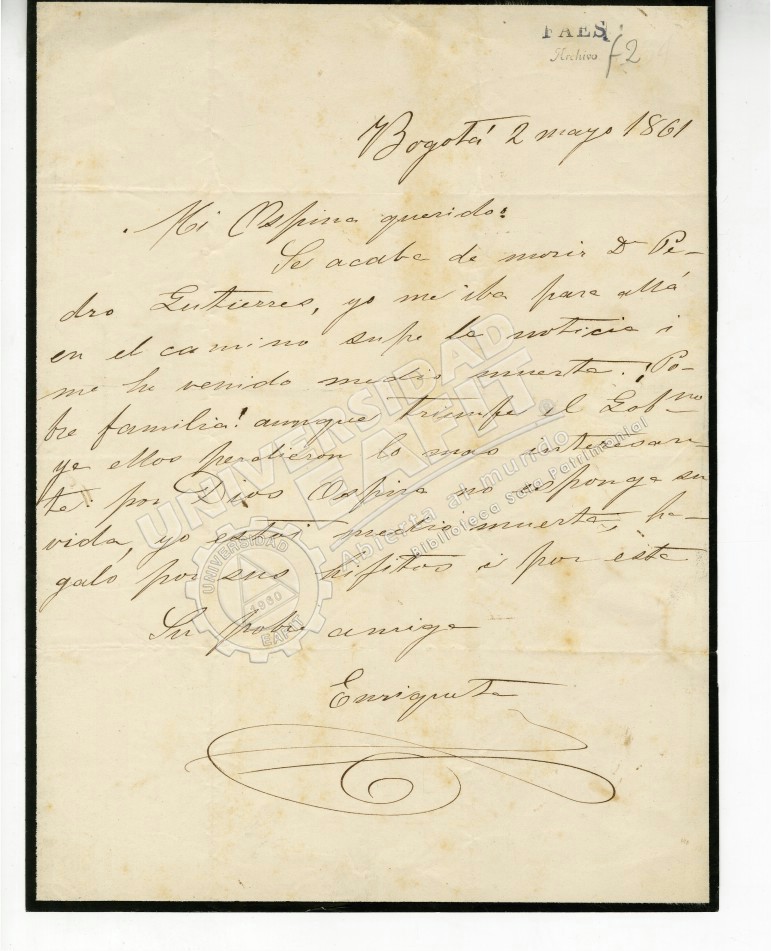 FAES
Archivo f2
Bogotá 2 mayo 1861
Mi Ospina querido:
Se acaba de morir Dn Pe-
dro Gutierres, yo me iba para allá
en el camino supe la noticia i
me he venido medio muerta. ¡Po-
bre familia! aunque triunfe el Gobno
ya ellos perdieron lo mas interesan-
te: por Dios Ospina no esponga su
vida, yo estoi medio muerta, ha-
galo por sus hijitos i por esta
Su pobre amiga
Enriqueta
UNIVERSIDAD
EAFIT®
Abierta al mundo
Biblioteca Sala Patrimonial
UNIVERSIDAD
1960
EAFIT